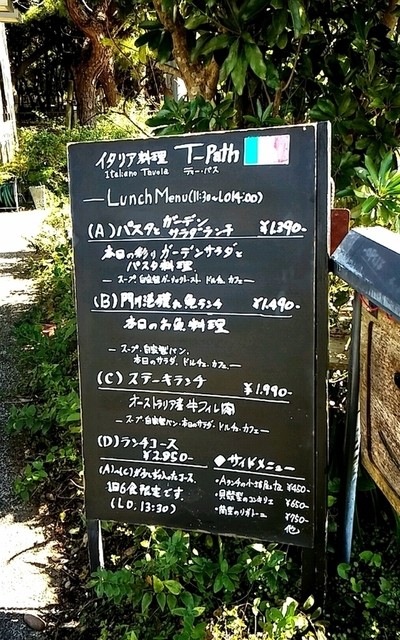 イタリア料理 T-Path
Italiano Tavola ティー・パス
Lunch Menu (11:30~LO14:00)
(A) パスタと ガーデンサラダランチ ¥1,390-
本日の彩りガーデンサラダと
パスタ料理
スープ、自家製ガーリックトースト ドルチェ、カフェ
(B) 魚ランチ ¥1,490-
本日のお魚料理
スープ、自家製パン、
本日のサラダ、ドルチェ、カフェ
(C) ステーキランチ ¥1,990-
オーストラリア産 牛フィレ肉
スープ、自家製パン、本日のサラダ、ドルチェ、カフェ
(D) ランチコース
¥2,950-
(A)+(C)
1日6食限定です
(LO. 13:30)
◆サイドメニュー
・Aランチの ¥450-
¥650-
¥750-
他